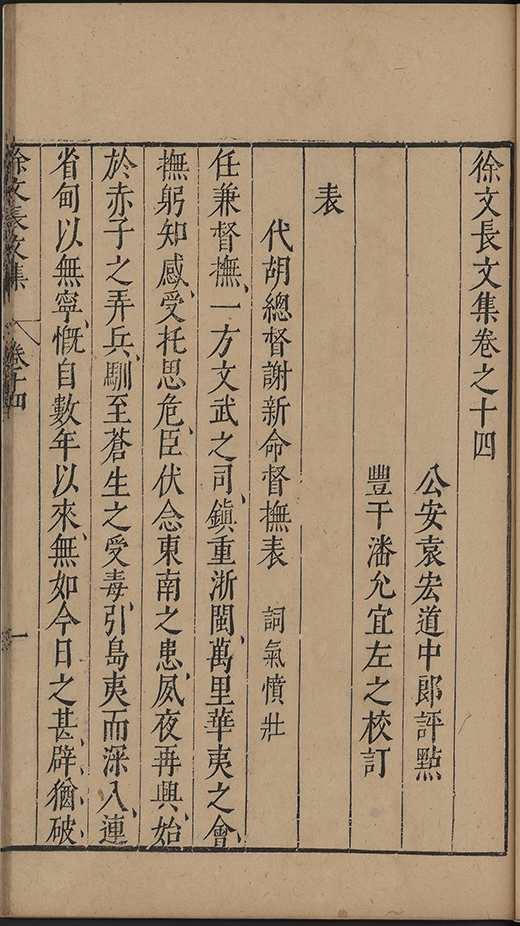 徐文長文集卷之十四
公安袁宏道中郎評點
豐干潘允宜左之校訂
表
代胡總督謝新命督撫表 詞氣憤壯
任兼督撫、一方文武之司、鎮重浙閩、萬里華夷之會、
撫躬知感、受托思危、臣伏念東南之患、夙夜再興、始
於赤子之弄兵、馴至蒼生之受毒、引島夷而深入、連
省甸以無寧、慨自數年以來、無如今日之甚、辟猶破
徐文長文集 卷十四 一